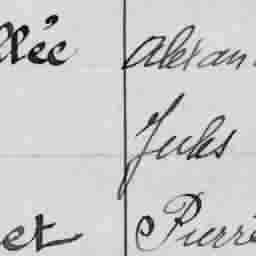 llée Alexan
Jules
et Pierre